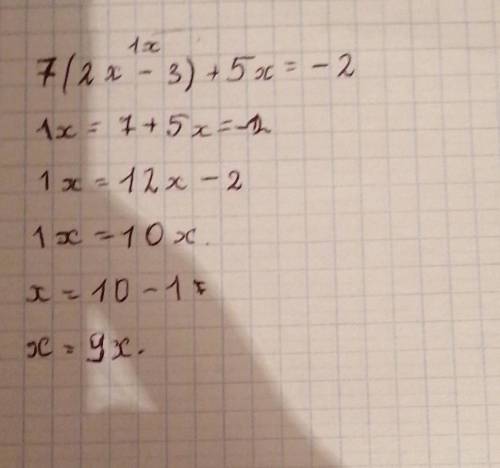 1x
7(2x - 3) + 5x = -2
1x = 7 + 5x = -2
1x = 12x - 2
1x = 10x.
x = 10 - 1
x = 9x.